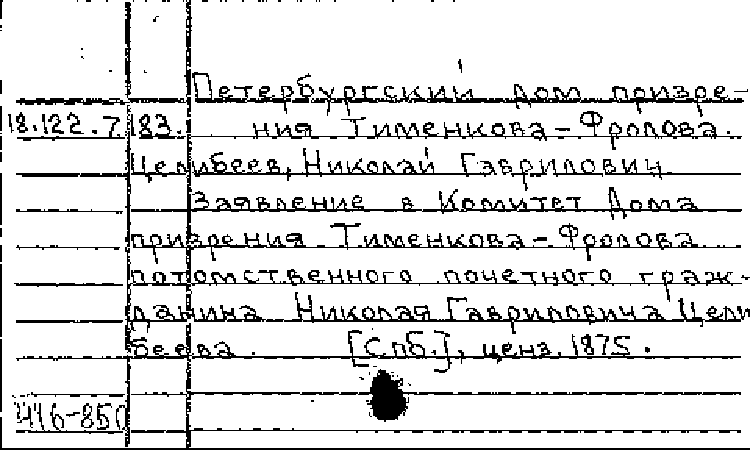 Петербургский Дом призре-
18.122.7 183. ния Тименкова-Фролова.
Целибеев, Николай Гаврилович
Заявление в Комитет Дома
призрения Тименкова-Фролова
потомственного почетного граж-
данина Николая Гавриловича Цели
беева. [Спб.], ценз. 1875.
446-850